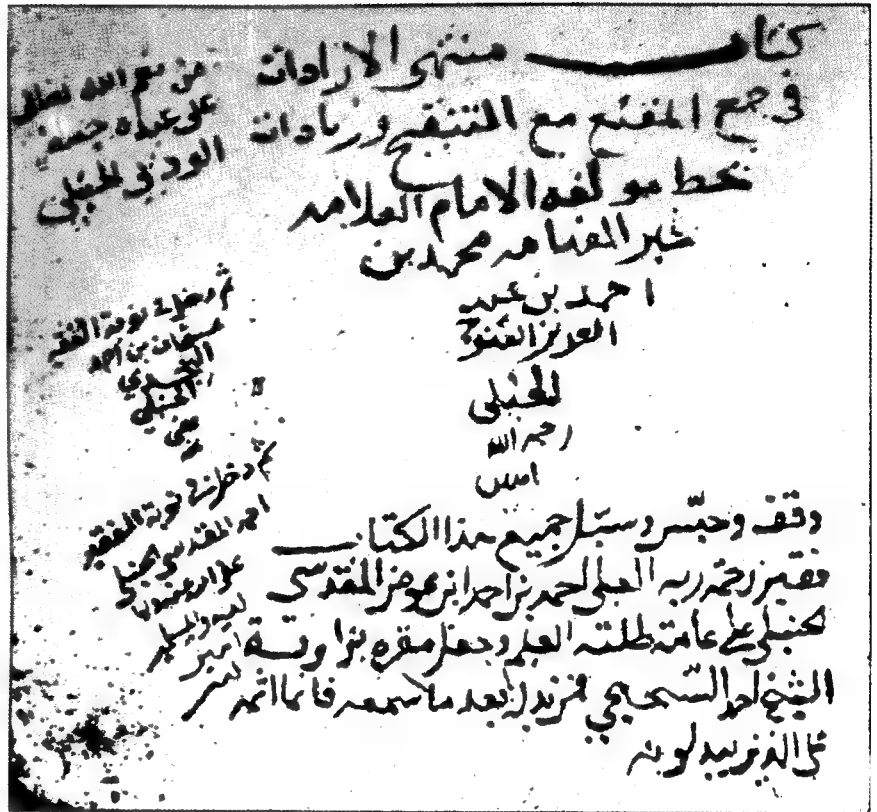 كتاب منتهى الارادات
في جمع المقنع مع التنقيح وزيادات
بخط مولفه الامام العلامه
محمد بن
احمد بن عبد
العزيز الفتوحي
الحنبلي
رحمه الله
امين
من نعم الله تعالى
على عبده
الحنبلي
ثم دخل في نوبة الفقير
عثمان بن احمد
النجدي
الحنبلي
ثم دخل في نوبة الفقير
احمد المقدسي الحنبلي
لوالديه
وقف وحبس وسبل جميع هذا الكتاب
فقير رحمة ربه العلي احمد بن احمد ابن عوض المقدسي
لحنبلي على عامة طلبة العلم وجعل مقره بزاوية
الشيخ احمد السحيمي فمن بدله بعد ما سمعه فانما اثمه
على الذين يبدلونه